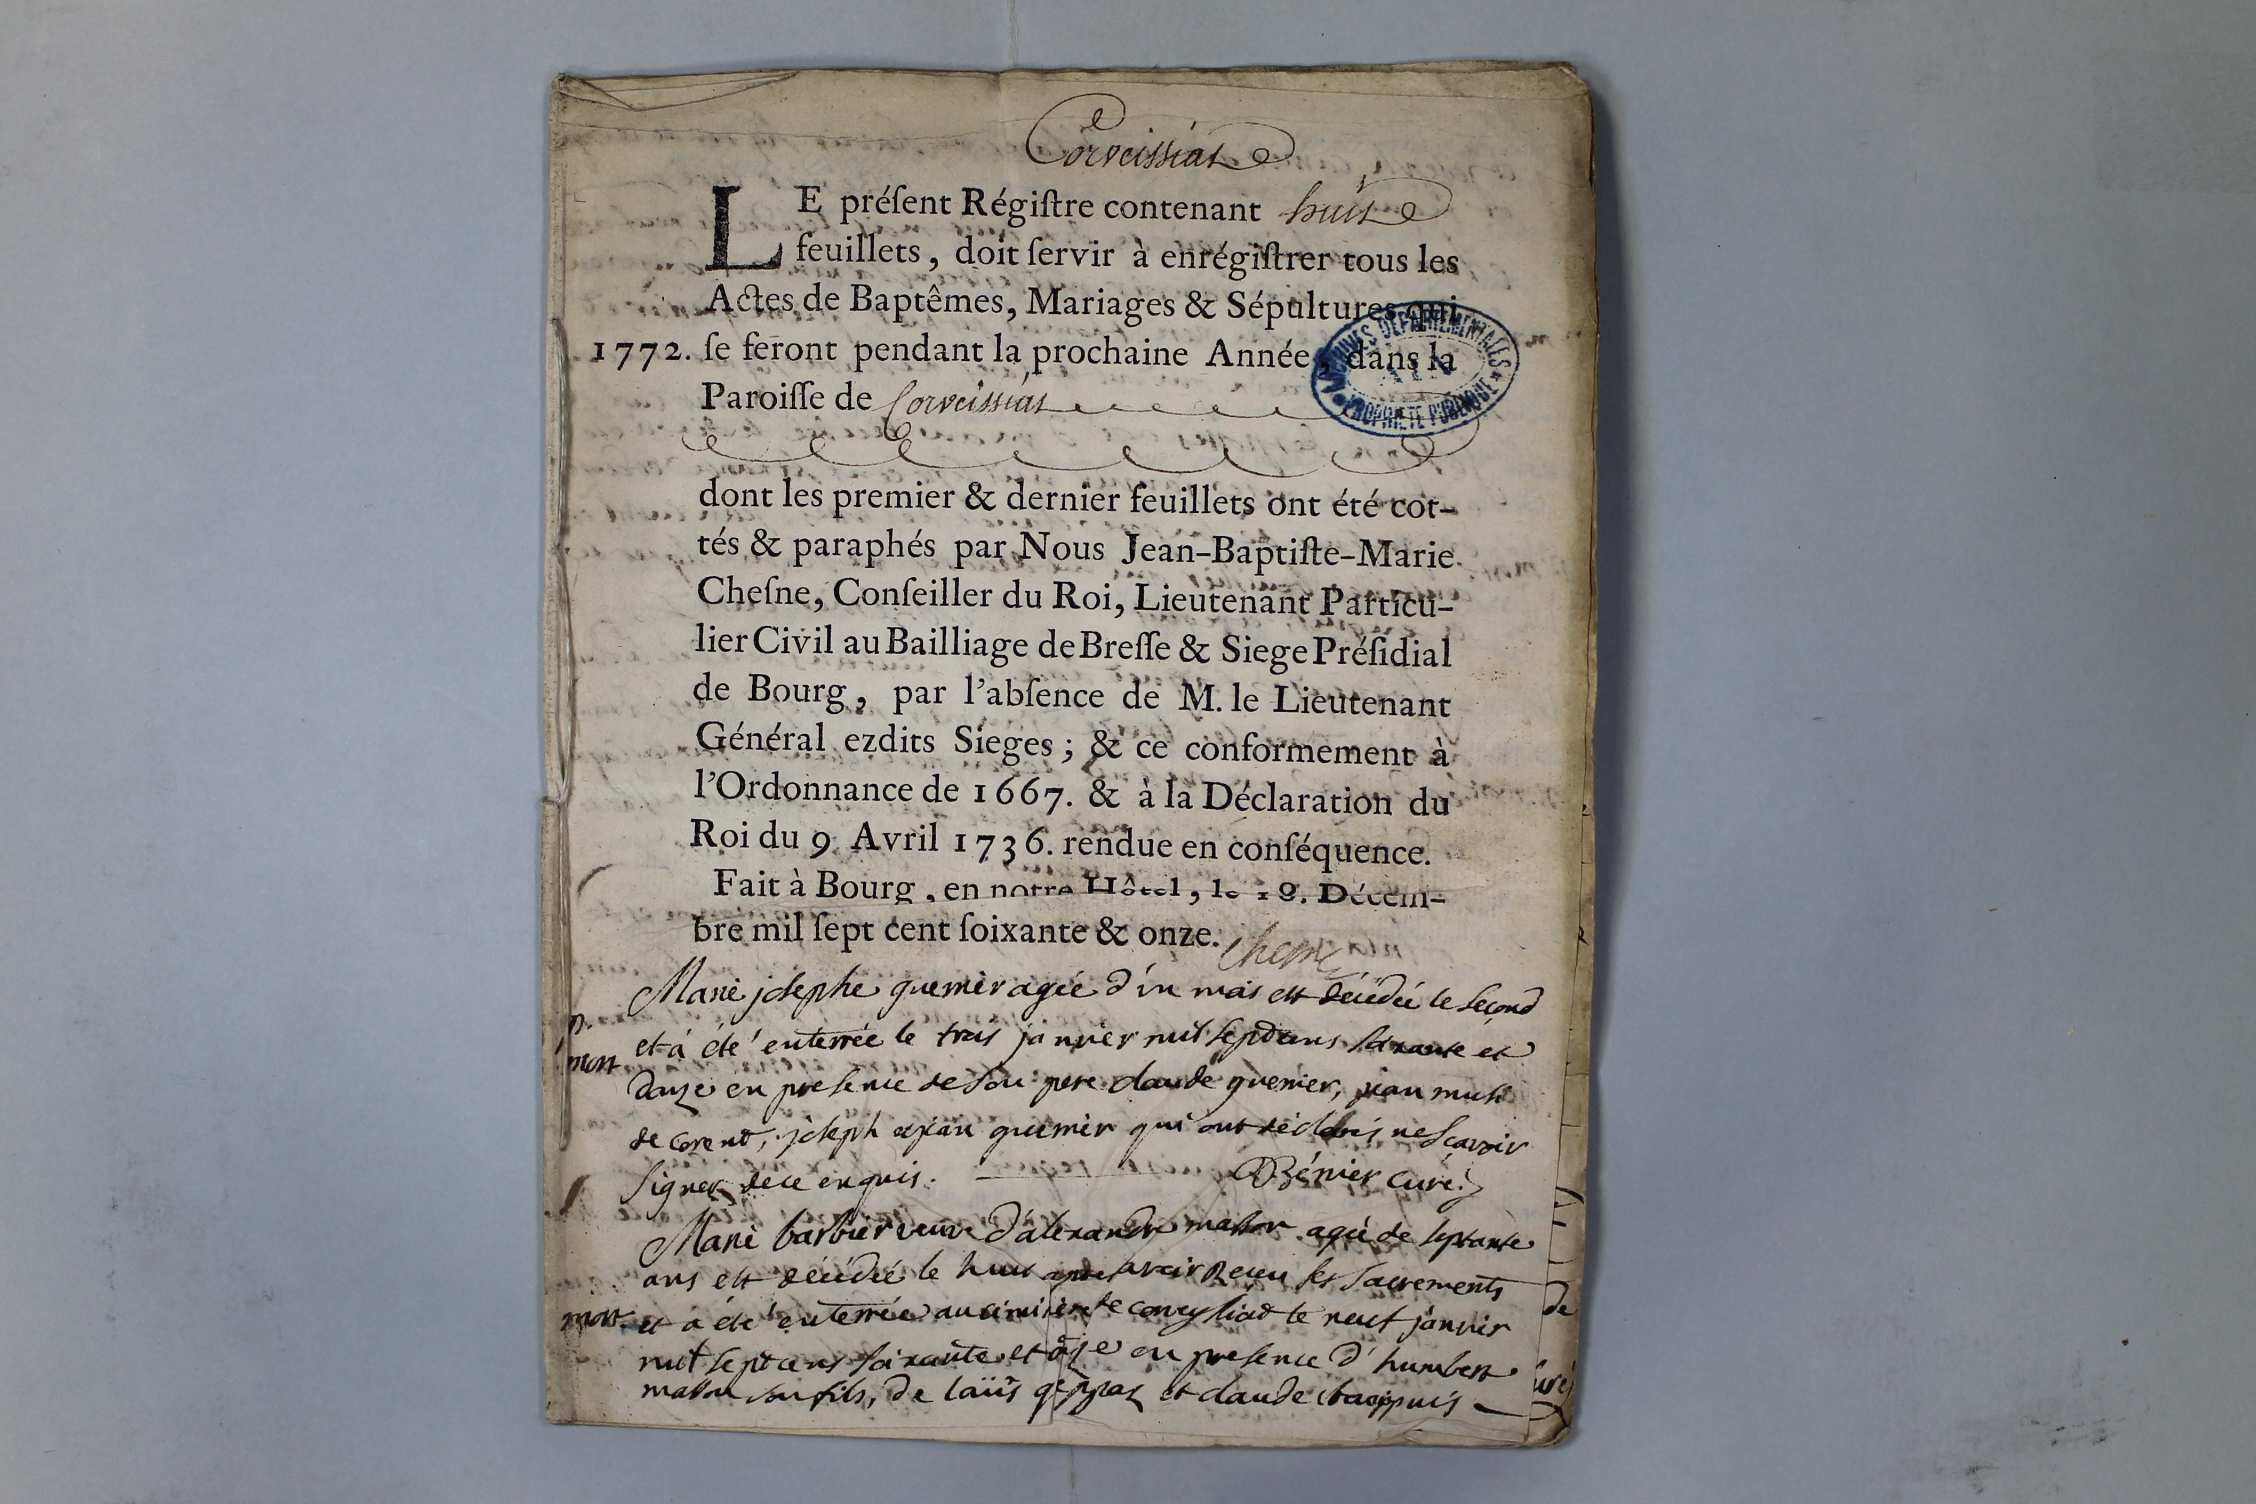 Corveissiat
LE préſent Régiſtre contenant huit
feuillets, doit ſervir à enrégiſtrer tous les
Actes de Baptêmes, Mariages & Sépultures qui
1772. ſe feront pendant la prochaine Année, dans la
Paroiſſe de Corveissiat
ARCHIVES DÉPARTEMENTALES
AIN
PROPRIÉTÉ PUBLIQUE
dont les premier & dernier feuillets ont été cot-
tés & paraphés par Nous Jean-Baptiſte-Marie
Cheſne, Conſeiller du Roi, Lieutenant Particu-
lier Civil au Bailliage de Breſſe & Siege Préſidial
de Bourg, par l'abſence de M. le Lieutenant
Général ezdits Sieges; & ce conformement à
l'Ordonnance de 1667. & à la Déclaration du
Roi du 9 Avril 1736. rendue en conſéquence.
Fait à Bourg, en notre Hôtel, le 18. Décem-
bre mil ſept cent ſoixante & onze. Chesne
Marie josephe guemier agée d'un mois est décédée le second
et à été enterrée le trois janvier mil septcens soixante et
mort
douze en presence de son pere claude guemier, jean
de corent, joseph et jean guemier qui ont déclarés ne scavoir
signer de ce enquis. Bénier curé
Marie barbier veuve d'alexandre mathon agée de septante
ans est décédée le huit après avoir receu les sacrements
mort
et à été enterrée au cimitière de le neuf janvier
mil septcens soixante et en presence d'humbert
son fils, de et claude
de
curé